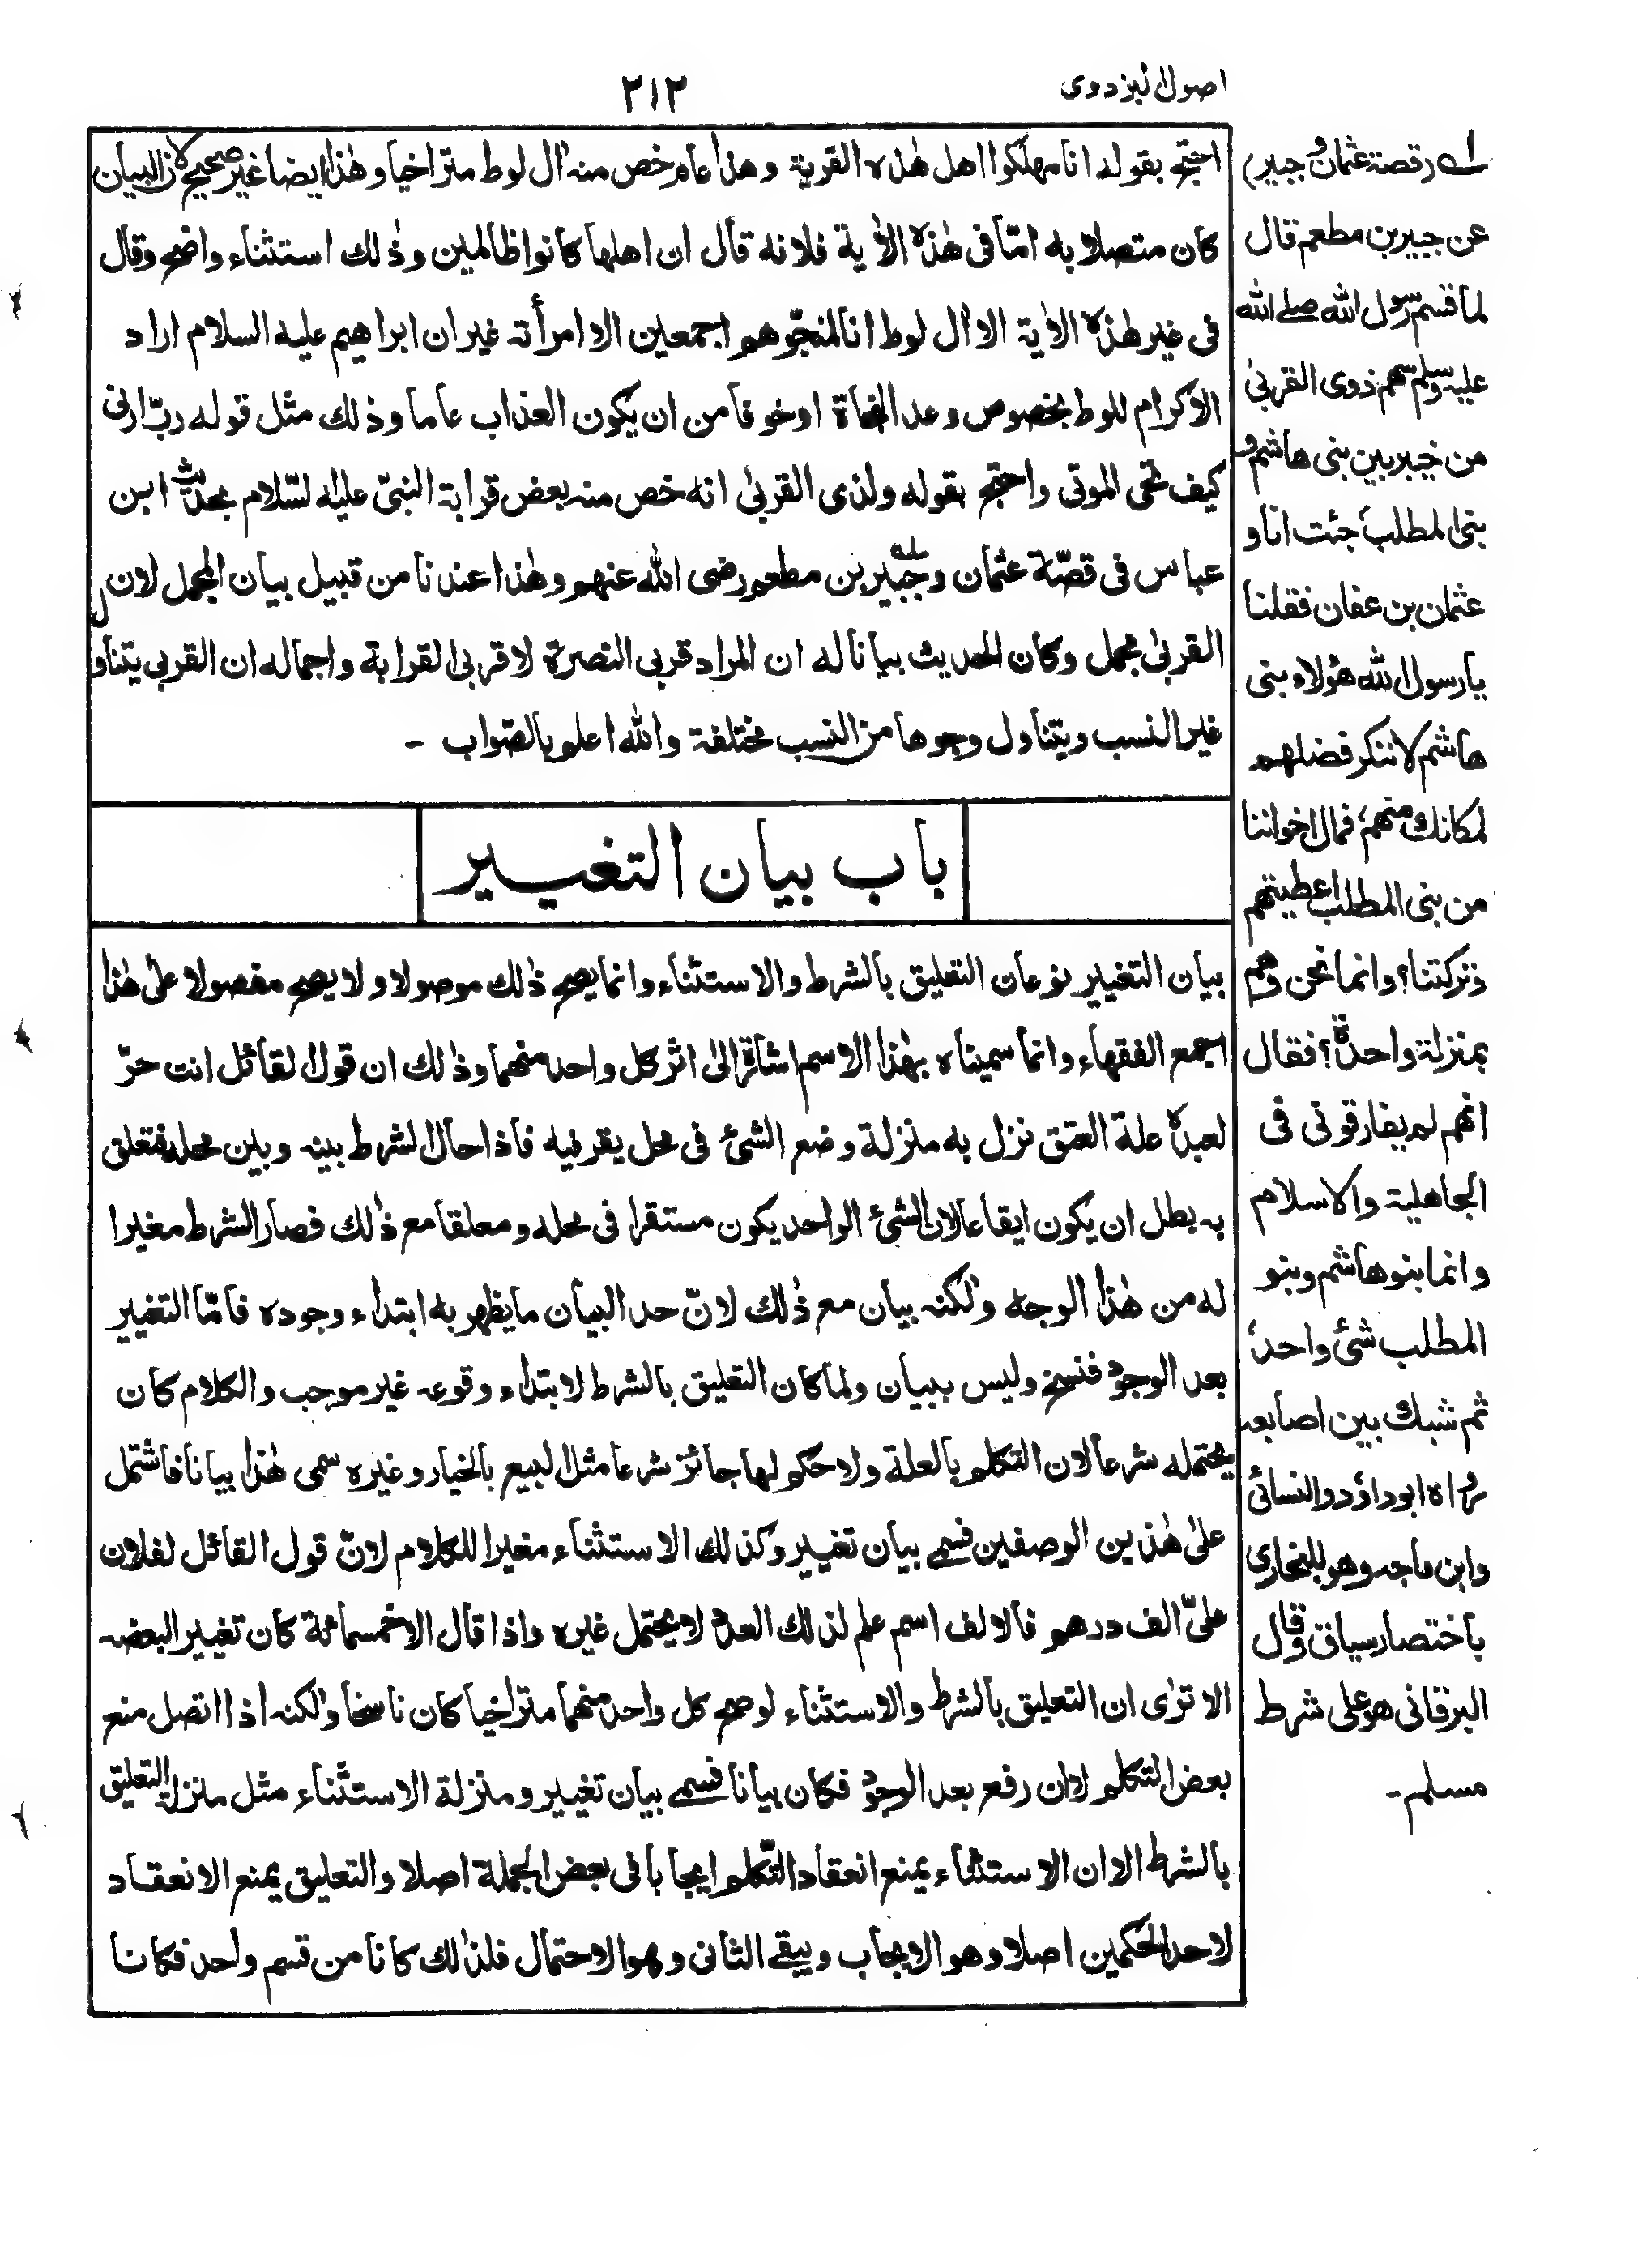 اصول البزدوى
٢١٢
احتج بقوله انا مهلكوا اهل هٰذه القرية وهذا عام خص منه اٰل لوط متراخيا وهٰذا ايضا غير صحيح لان البيان
كان متصلا به امّا فى هٰذه الاٰية فلانه قال ان اهلها كانوا ظالمين وذٰلك استثناء واضح وقال
فى غير هٰذه الاٰية الا اٰل لوط انا لمنجّوهم اجمعين الا امرأته غير ان ابراهيم عليه السلام اراد
الاكرام للوط بخصوص وعد النجاة او خوفا من ان يكون العذاب عاما وذلك مثل قوله ربّ ارنى
كيف تحى الموتى واحتج بقوله ولذى القربىٰ انه خص منه بعض قرابة النبىّ عليه السّلام بحديث ابن
عباس فى قصّة عثمان وجبير بن مطعم رضى الله عنهم وهٰذا عندنا من قبيل بيان المجمل لان
القربىٰ مجمل وكان الحديث بيانا له ان المراد قربى النصرة لا قربى القرابة واجماله ان القربى يتناول
غير النسب ويتناول وجوها من النسب مختلفة والله اعلم بالصّواب -
باب بيان التغيير
بيان التغيير نوعان التعليق بالشرط والاستثناء وانما يصح ذٰلك موصولا ولا يصح مفصولا علىٰ هٰذا
اجمع الفقهاء وانما سميناه بهٰذا الاسم اشارة الىٰ اثر كل واحد منهما وذٰلك ان قول القائل انت حرّ
لعبده علة العتق نزل به منزلة وضع الشئ فى محل يقر فيه فاذا حال الشرط بينه وبين محله فتعلق
به بطل ان يكون ايقاعا لان الشئ الواحد يكون مستقرا فى محله ومعلقا مع ذٰلك فصار الشرط مغيرا
له من هٰذا الوجه ولٰكنه بيان مع ذٰلك لانّ حد البيان ما يظهر به ابتداء وجوده فامّا التغيير
بعد الوجود فنسخ وليس ببيان ولما كان التعليق بالشرط لابتداء وقوعه غير موجب والكلام كان
يحتمله شرعا لان التكلم بالعلة ولا حكم لها جائز شرعا مثل البيع بالخيار وغيره سمى هٰذا بيانا فاشتمل
علىٰ هٰذين الوصفين فسمى بيان تغيير وكذلك الاستثناء مغيرا للكلام لانّ قول القائل لفلان
علىّ الف درهم فالالف اسم علم لذلك العدد لا يحتمل غيره واذا قال الا خمسمائة كان تغييرا لبعضه
الا ترٰى ان التعليق بالشرط والاستثناء لو صح كل واحد منهما متراخيا كان ناسخا ولٰكنه اذا اتصل منع
بعض التكلم لا ان رفع بعد الوجود فكان بيانا فسمى بيان تغيير ومنزلة الاستثناء مثل منزلة التعليق
بالشرط الا ان الاستثناء يمنع انعقاد التّكلم ايجابا فى بعض الجملة اصلا والتعليق يمنع الانعقاد
لاحد الحكمين اصلا وهو الايجاب ويبقى الثانى وهو الاحتمال فلذٰلك كانا من قسم واحد فكانا
١ (قصة عثمان وجبير)
عن جبير بن مطعم قال
لما قسم رسول الله صلى الله
عليه وسلم سهم ذوى القربىٰ
من خيبر بين بنى هاشم و
بنى المطلب جئت انا و
عثمان بن عفان فقلنا
يا رسول الله هؤلاء بنى
هاشم لا ننكر فضلهم
لمكانك منهم، فمال اخواننا
من بنى المطلب اعطيتهم
وتركتنا؟ وانما نحن وهم
بمنزلة واحدة؟ فقال
انهم لم يفارقونى فى
الجاهلية والاسلام
وانما بنو هاشم وبنو
المطلب شئ واحد
ثم شبك بين اصابعه
رواه ابوداؤد والنسائى
وابن ماجه وهو للبخارى
باختصار سياق وقال
البرقانى هو على شرط
مسلم -